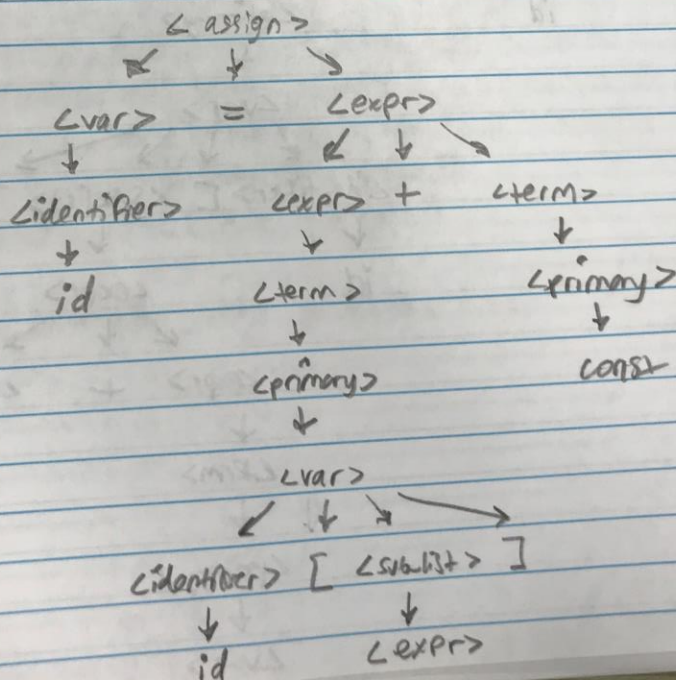 <assign>
<var> = <expr>
<identifier> <expr> + <term>
id <term> <primary>
<primary> const
<var>
<identifier> [ <sublist> ]
id <expr>